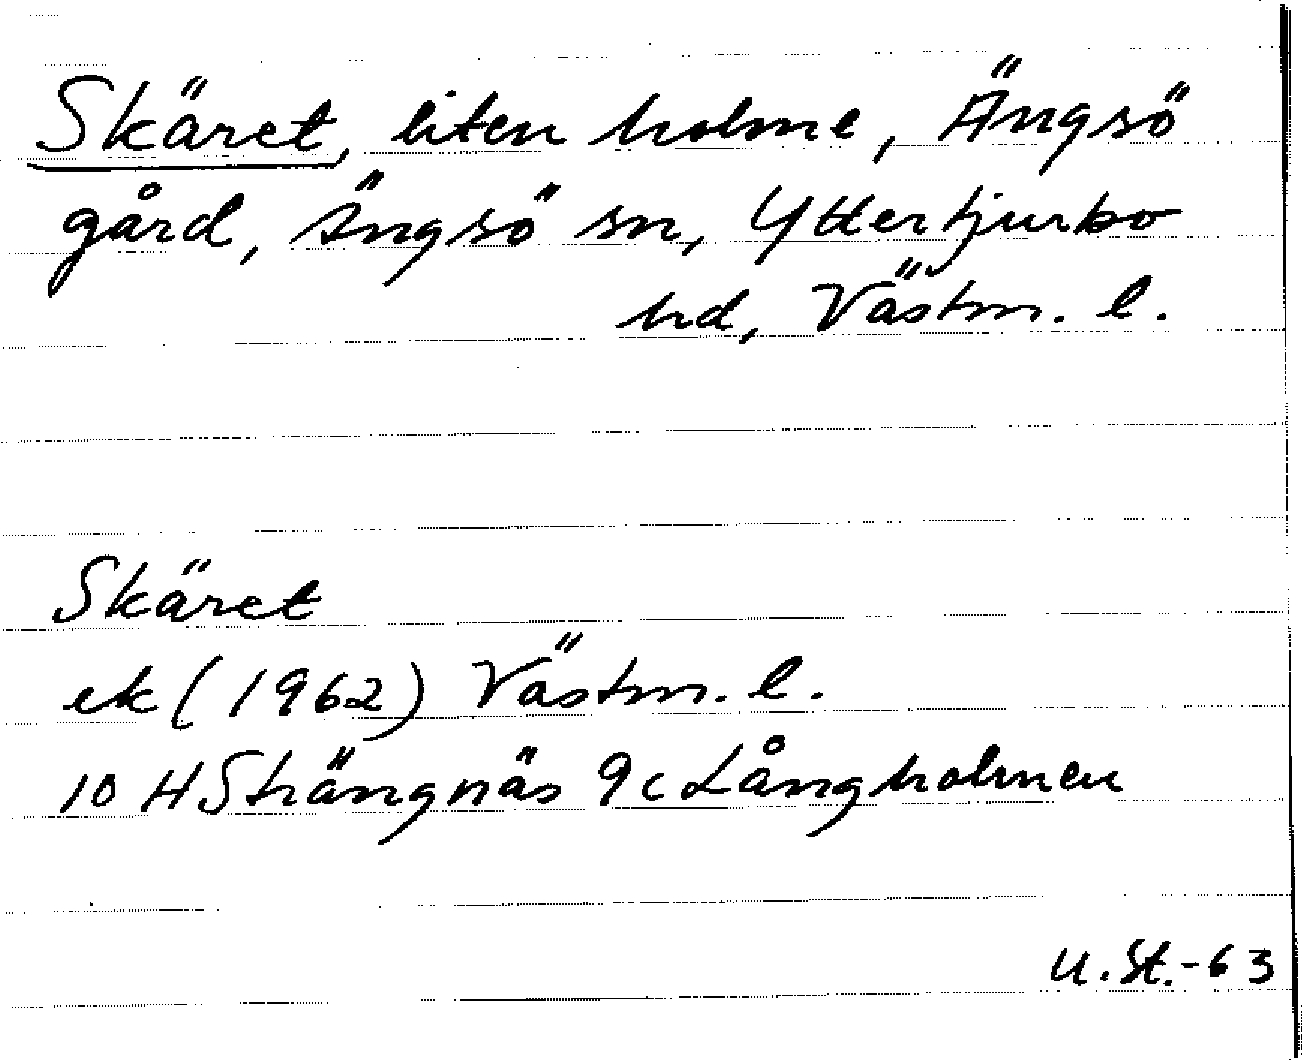 Skäret, liten holme, Ängsö
gård, Ängsö sn, Yttertjurbo
hd, Västm. l.
Skäret
ek (1962) Västm. l.
10 H Strängnäs 9c Långholmen
U.St.-63